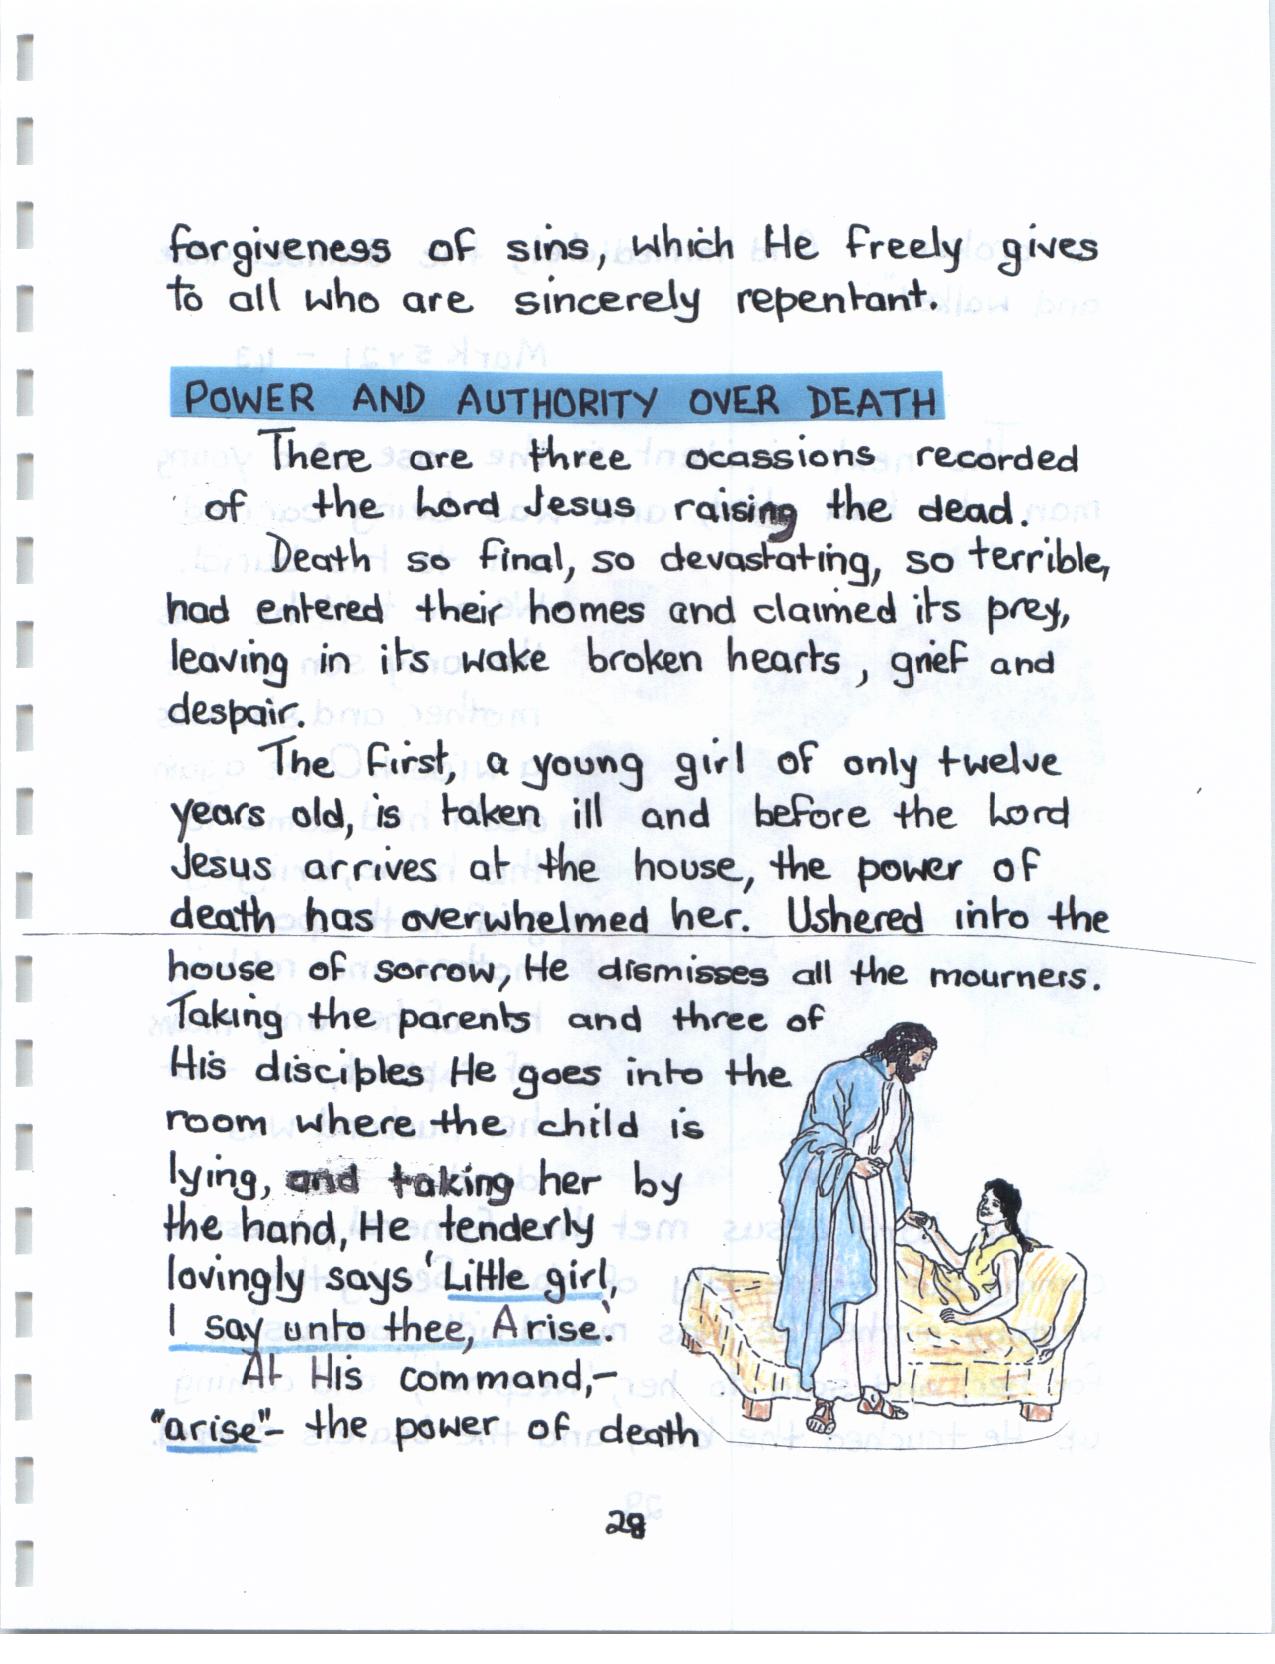 forgiveness of sins, which He freely gives
to all who are sincerely repentant.
POWER AND AUTHORITY OVER DEATH
There are three ocassions recorded
of the Lord Jesus raising the dead.
Death so final, so devastating, so terrible,
had entered their homes and claimed its prey,
leaving in its wake broken hearts, grief and
despair.
The first, a young girl of only twelve
years old, is taken ill and before the Lord
Jesus arrives at the house, the power of
death has overwhelmed her. Ushered into the
house of sorrow, He dismisses all the mourners.
Taking the parents and three of
His disciples He goes into the
room where the child is
lying, and taking her by
the hand, He tenderly
lovingly says 'Little girl,
I say unto thee, Arise.'
At His command,-
"arise"- the power of death
28